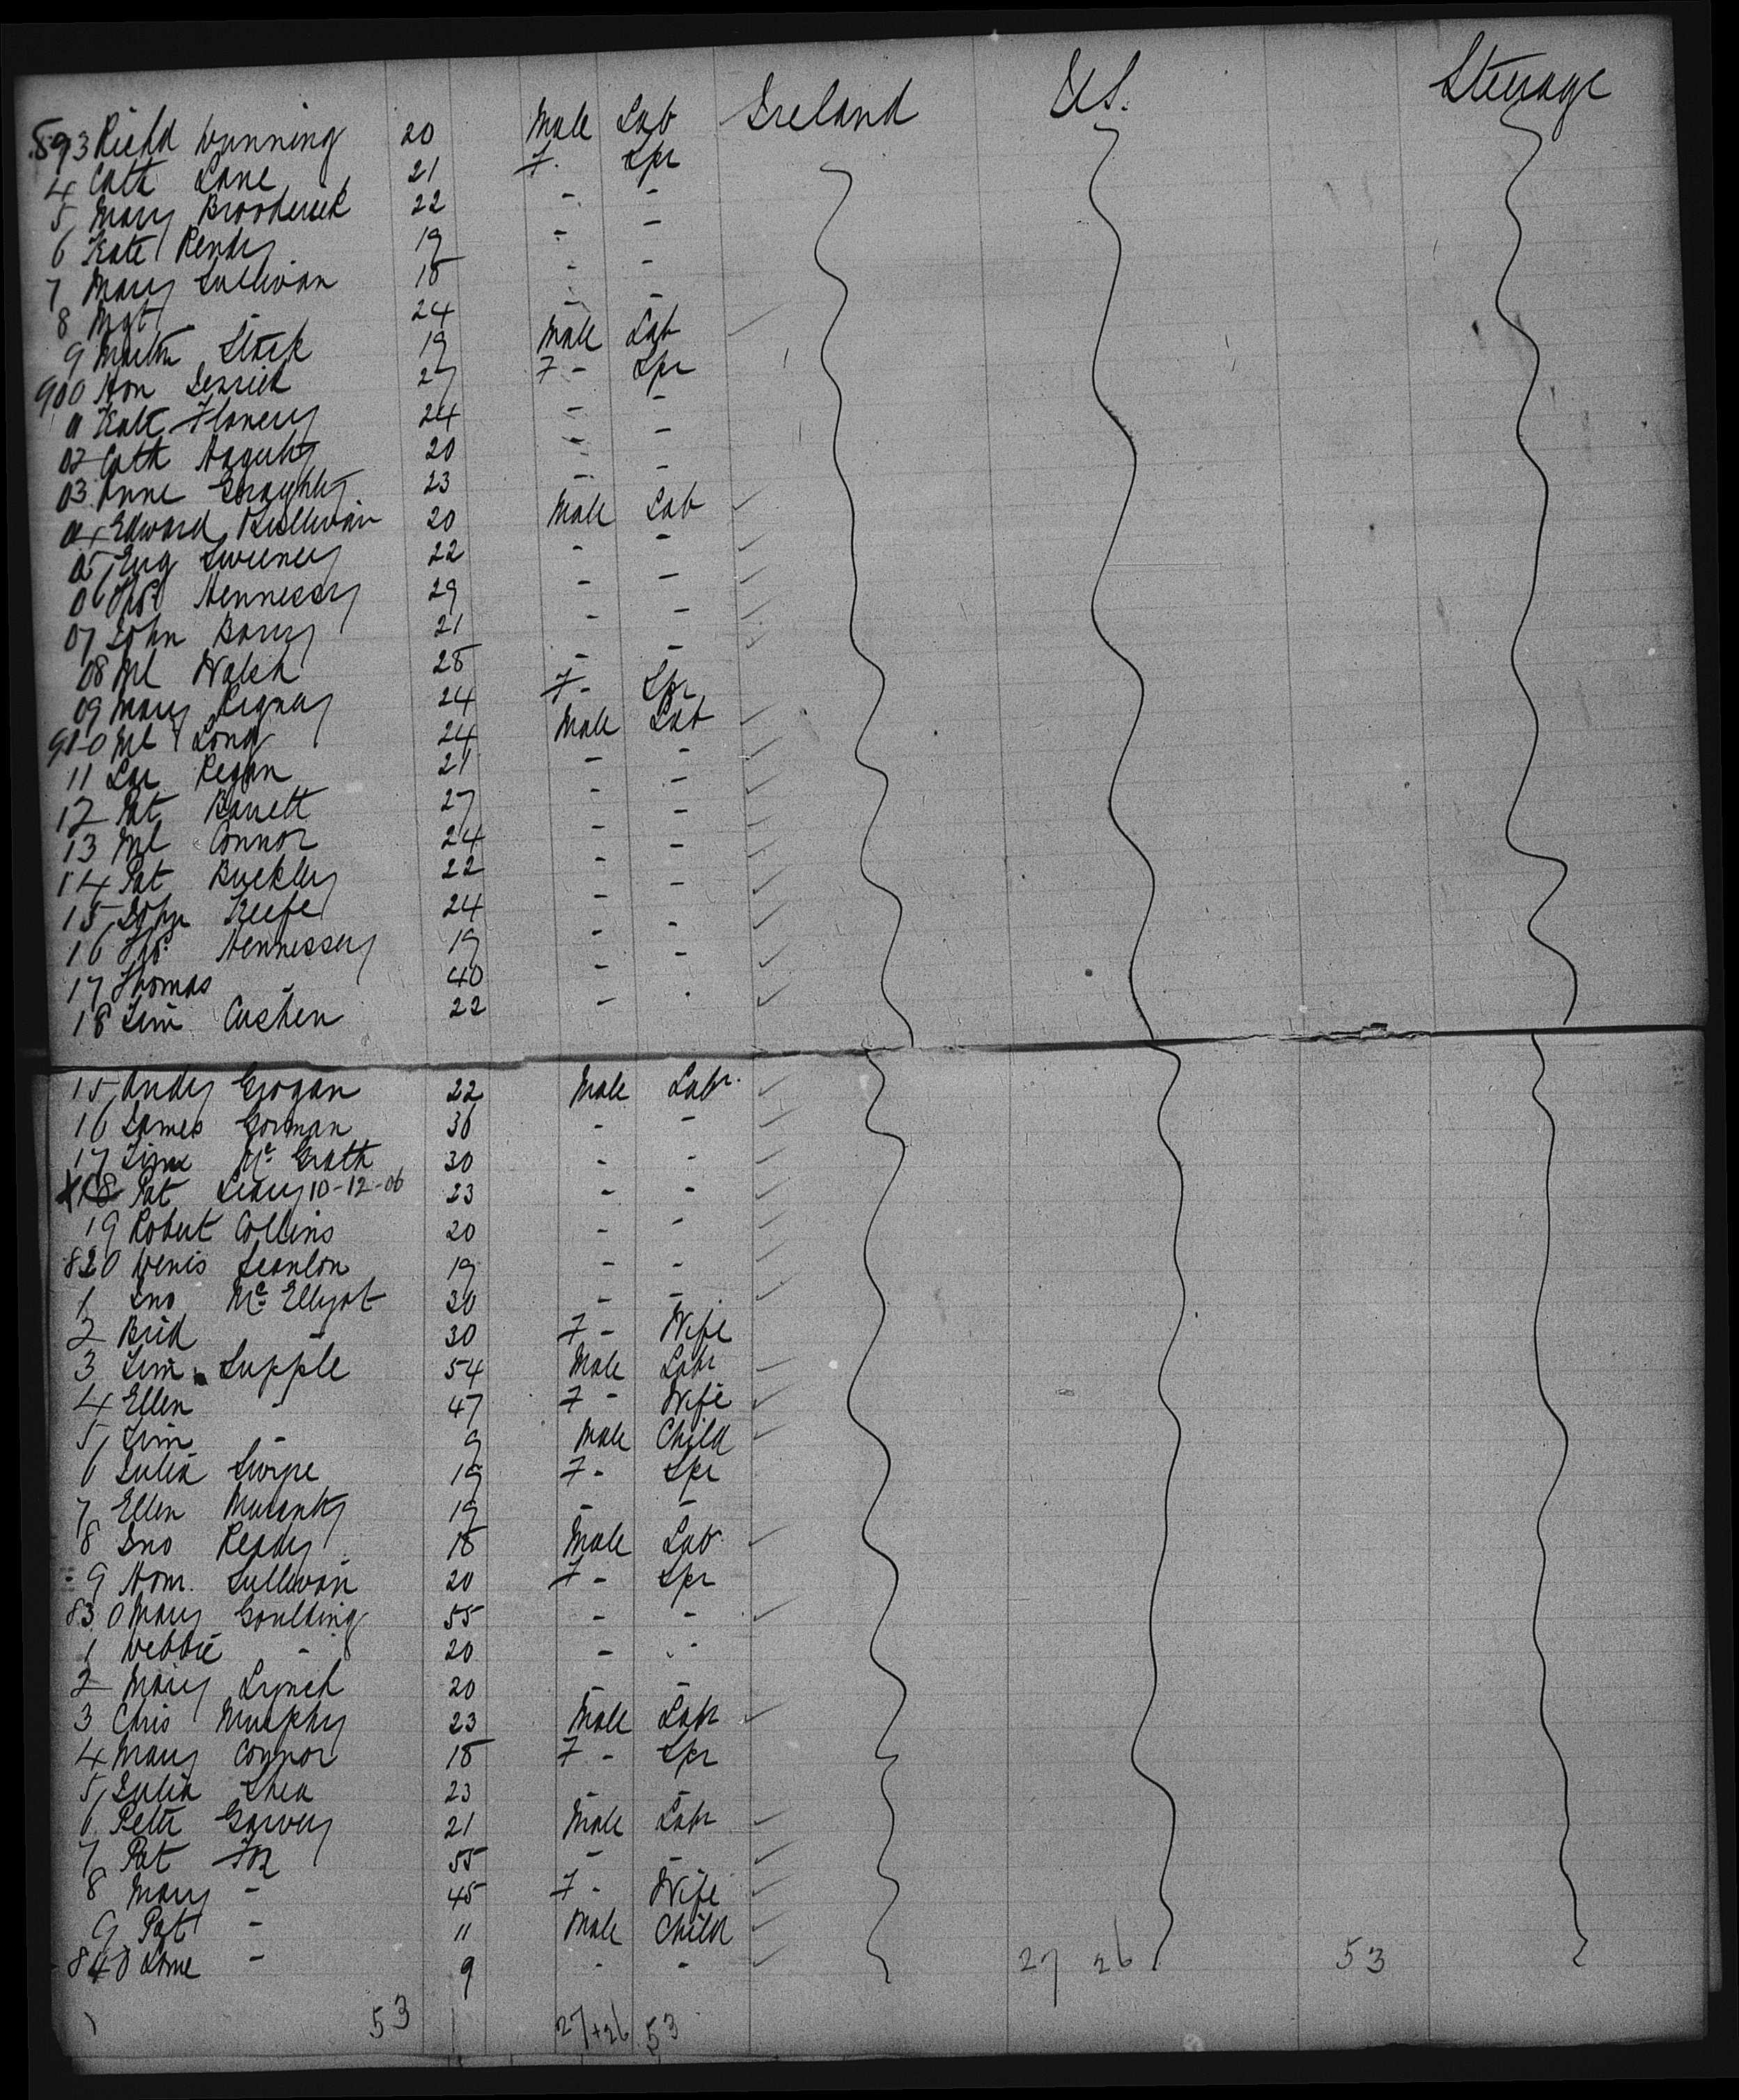 Ireland US. Steerage
593 Richd Dunning 20 Male Lab
4 Cath Lane 21 F. Spr
5 Mary Broderick 22 - -
6 Kate 19 - -
7 Mary Sullivan 18 - -
8 Mgt - 24 - -
9 Martin Stack 19 Male Lab
900 Hon 27 F - Spr
01 Kate Flanery 24 - -
02 Cath 20 - -
03 Anne Geraghty 23 - -
04 Edward Sullivan 20 Male Lab
05 Eug Sweeney 22 - -
06 Thos Hennessy 29 - -
07 John Barry 21 - -
08 Ml Walsh 28 - -
09 Mary 24 F- Spr
910 Ml Long 24 Male Lab
11 Regan 21 - -
12 Pat Barrett 27 - -
13 Ml Connor 24 - -
14 Pat Buckley 22 - -
15 John Keefe 24 - -
16 Thos. Hennessey 19 - -
17 Thomas - 40 - -
18 Jim Cashen 22 - -
15 Andy Grogan 22 Male Labr.
16 James Gorman 36 - -
17 Jim Mc Grath 30 - -
X 18 Pat Leary 10-12-06 23 - -
19 Robert Collins 20 - -
820 Denis Scanlon 19 - -
1 Jno Mc Elligot 30 - -
2 Brid - 30 F - Wife
3 Jim Supple 54 Male Labr
4 Ellen - 47 F - Wife
5 Jim - 9 Male Child
6 Julia 19 F- Spr
7 Ellen Moriarty 19 - -
8 Jno Ready 18 Male Lab
9 Hon. Sullivan 20 F - Spr
830 Mary Goulding 55 - -
1 Debbie - 20 - -
2 Mary Lynch 20 - -
3 Chris Murphy 23 Male Labr
4 Mary Connor 18 F - Spr
5 Julia Shea 23 - -
6 Peter Garvey 21 Male Labr
7 Pat Fox 55 - -
8 Mary - 45 F - Wife
9 Pat - 11 Male Child
840 Jame - 9 - -
27 26 53
53 27+26 53